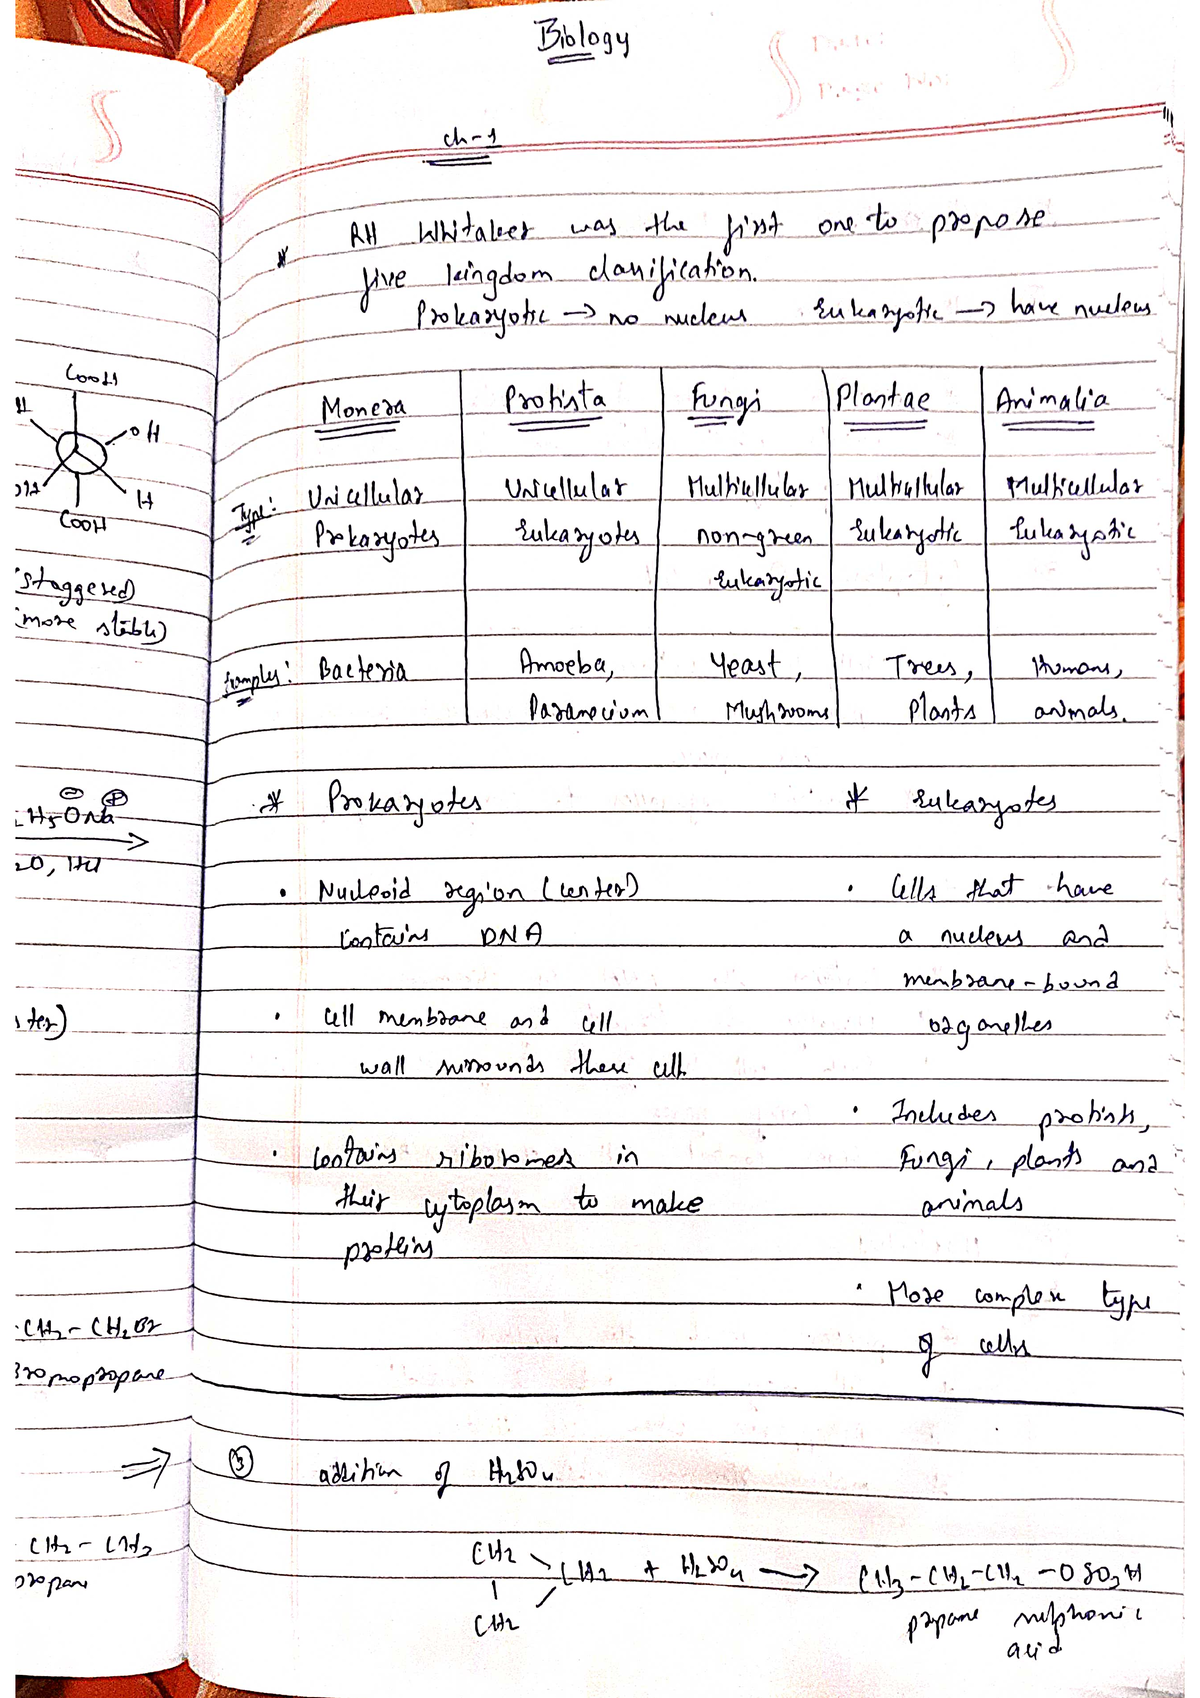 Biology
Date:
Page No:
Ch-1
* RH Whitaker was the first one to propose
five kingdom classification.
Prokaryotic → no nucleus Eukaryotic → have nucleus
Monera Protista Fungi Plantae Animalia
Type: Unicellular Unicellular Multicellular Multicellular Multicellular
Prokaryotes Eukaryotes non-green Eukaryotic Eukaryotic
Eukaryotic
Examples: Bacteria Amoeba, Yeast, Trees, Humans,
Paramecium Mushrooms Plants animals.
* Prokaryotes * Eukaryotes
• Nucleoid region (center) • Cells that have
contains DNA a nucleus and
membrane-bound
• Cell membrane and cell organelles
wall surrounds these cell
• Includes protists,
• Contains ribosomes in Fungi, plants and
their cytoplasm to make animals
proteins
• More complex type
of cells
③ addition of H2SO4
CH2
CH2 + H2SO4 → CH3-CH2-CH2-OSO3H
CH2
propane sulphonic
acid
COOH
H
OH
OH H
COOH
staggered)
more stable)
H5ONa
2O, HCl
ster)
-CH2-CH2Br
Bromopropane
⇒
CH2-CH3
propane